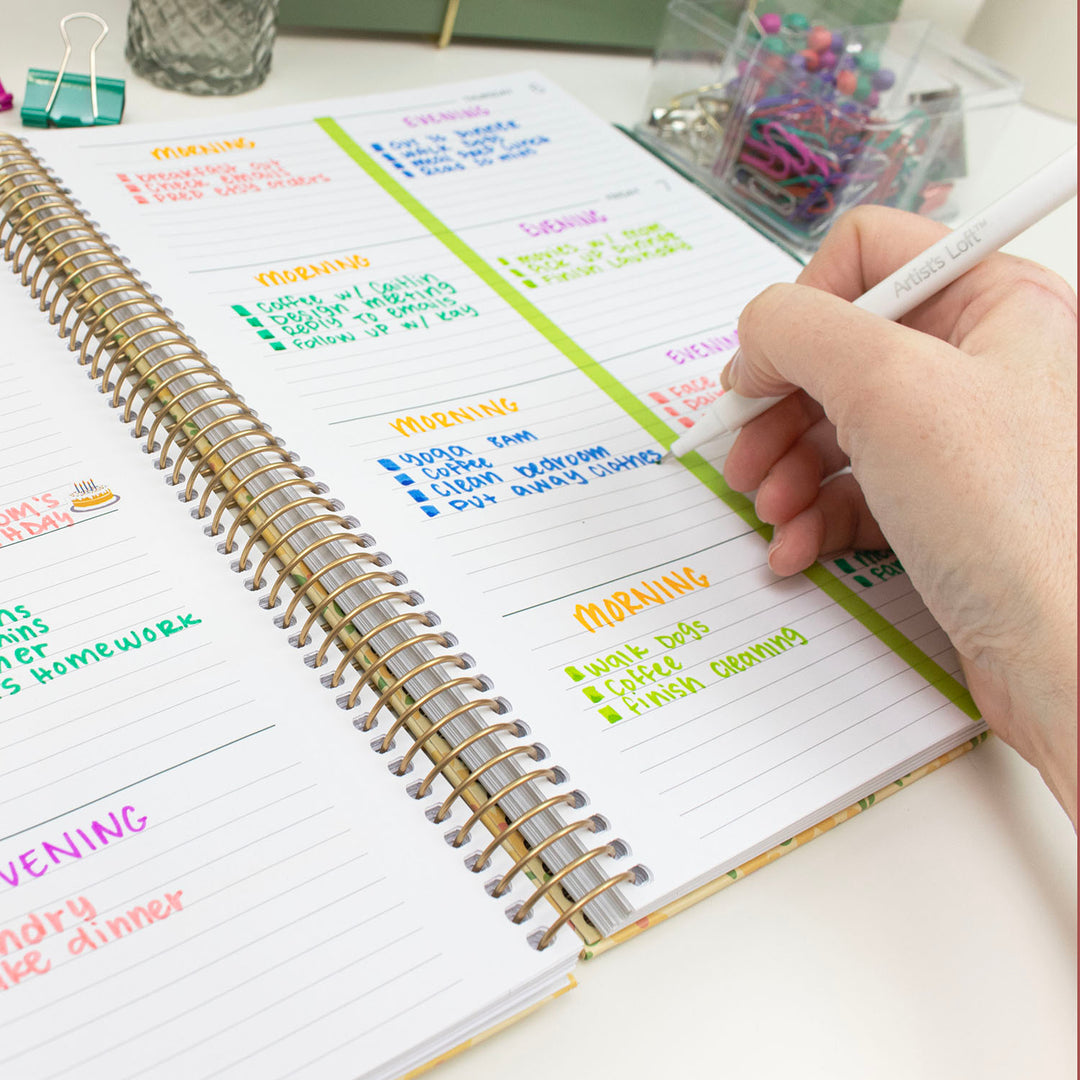 OM'S
HDAY
ns
ains
ner
s HOMEWORK
VENING
ndry
ake dinner
THURSDAY 6
MORNING
breakfast out
CHECK EMAILS
PREP easy orders
EVENING
Out to dinner
walk dogs
meal prep lunch
Read 30 mins
FRIDAY 7
MORNING
Coffee w/ Caitlin
Design meeting
Reply to emails
Follow up w/ Kay
EVENING
movies w/ mom
Pick up dinner
Finish laundry
MORNING
yoga 8AM
Coffee
Clean bedroom
PUt away clothes
EVENING
Face
MORNING
walk Dogs
Coffee
finish cleaning
Artist's Loft™